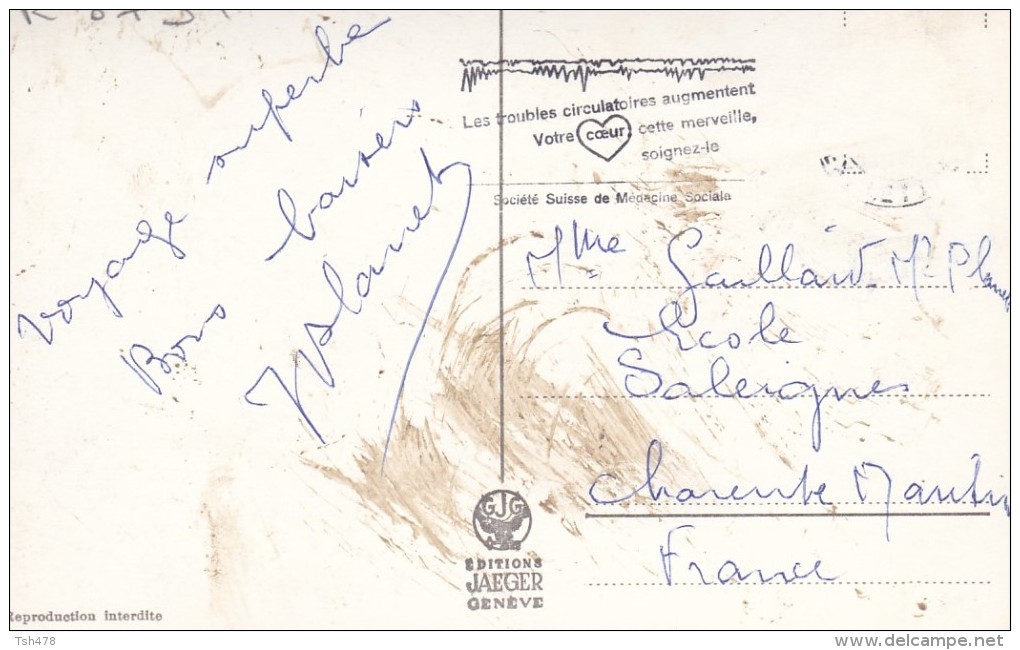 Voyage superbe
Bons baisers
Les troubles circulatoires augmentent
Votre cœur, cette merveille,
soignez-le
Société Suisse de Médecine Sociale
Mme Gaillard
Ecole
Saleignes
Charente Maritim
France
GJG
EDITIONS
JAEGER
GENÈVE
Reproduction interdite
Tsh478
delcampe.net